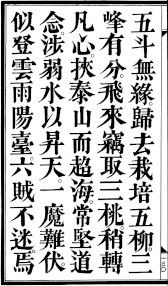 五斗無緣歸去栽培五柳三
峰有分飛來竊取三桃稍轉
凡心挾泰山而超海常堅道
念涉弱水以昇天一魔難伏
似登雲雨陽臺六賊不迷焉